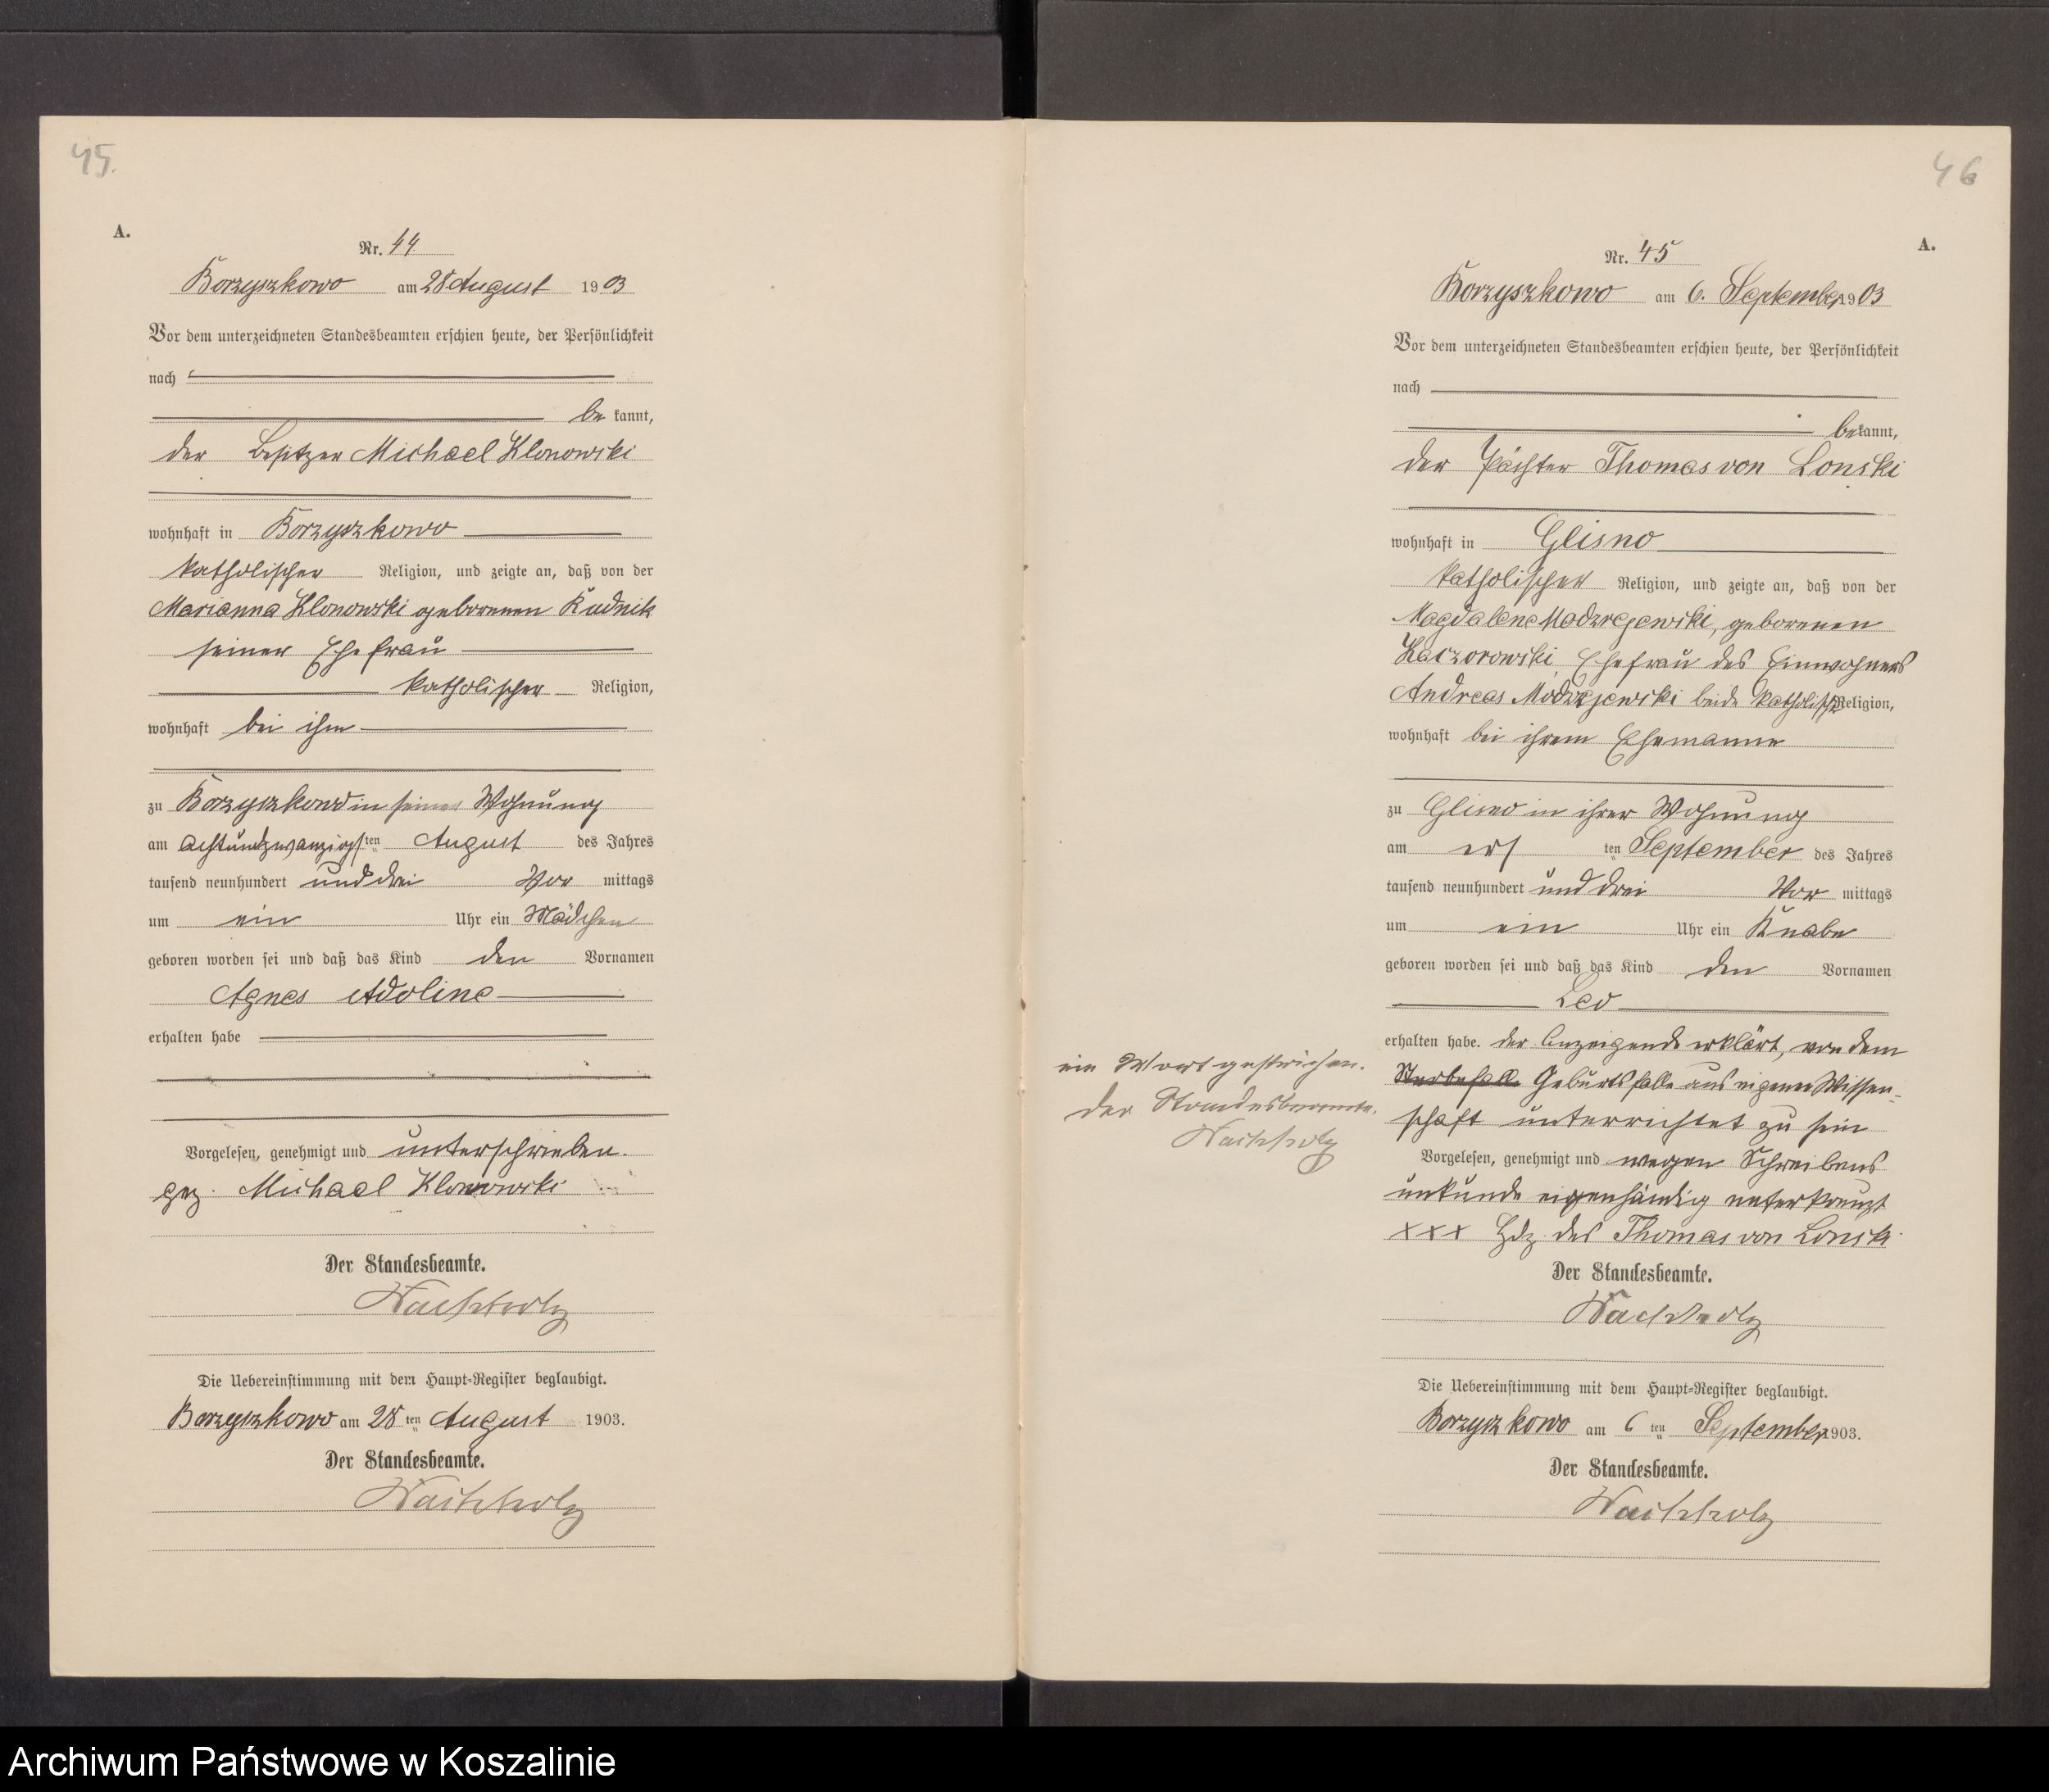 45.
A.
Nr. 44
Borzyszkowo am 28 August 1903
Vor dem unterzeichneten Standesbeamten erschien heute, der Persönlichkeit
nach
be kannt,
der Besitzer Michael Klonowski
wohnhaft in Borzyszkowo
katholischer Religion, und zeigte an, daß von der
Marianna Klonowski geborenen Rudnik
seiner Ehefrau
katholischer Religion,
wohnhaft bei ihm
zu Borzyszkowo in seiner Wohnung
am achtundzwanzigsten August des Jahres
tausend neunhundert und drei Vor mittags
um ein Uhr ein Mädchen
geboren worden sei und daß das Kind den Vornamen
Agnes Adoline
erhalten habe
Vorgelesen, genehmigt und unterschrieben.
gez. Michael Klonowski
Der Standesbeamte.
Wachholz
Die Uebereinstimmung mit dem Haupt-Register beglaubigt.
Borzyszkowo am 28ten August 1903.
Der Standesbeamte.
Wachholz
46
A.
Nr. 45
Borzyszkowo am 6. September 1903
Vor dem unterzeichneten Standesbeamten erschien heute, der Persönlichkeit
nach
bekannt,
der Pächter Thomas von Lonski
wohnhaft in Glisno
katholischer Religion, und zeigte an, daß von der
Magdalene Modrzejewski, geborenen
Kaczorowski, Ehefrau des Einwohners
Andreas Modrzejewski beide katholisch Religion,
wohnhaft bei ihrem Ehemanne
zu Glisno in ihrer Wohnung
am ersten September des Jahres
tausend neunhundert und drei Vor mittags
um ein Uhr ein Knabe
geboren worden sei und daß das Kind den Vornamen
Leo
erhalten habe. der Anzeigende erklärt, von dem
Sterbefalle Geburtsfalle aus eigener Wissen-
schaft unterrichtet zu sein
Vorgelesen, genehmigt und wegen Schreibens
unkunde eigenhändig unterkreuzt
xxx Hdz. des Thomas von Lonski
Der Standesbeamte.
Wachholz
Die Uebereinstimmung mit dem Haupt-Register beglaubigt.
Borzyszkowo am 6ten September 1903.
Der Standesbeamte.
Wachholz
ein Wort gestrichen.
Der Standesbeamte.
Wachholz
Archiwum Państwowe w Koszalinie